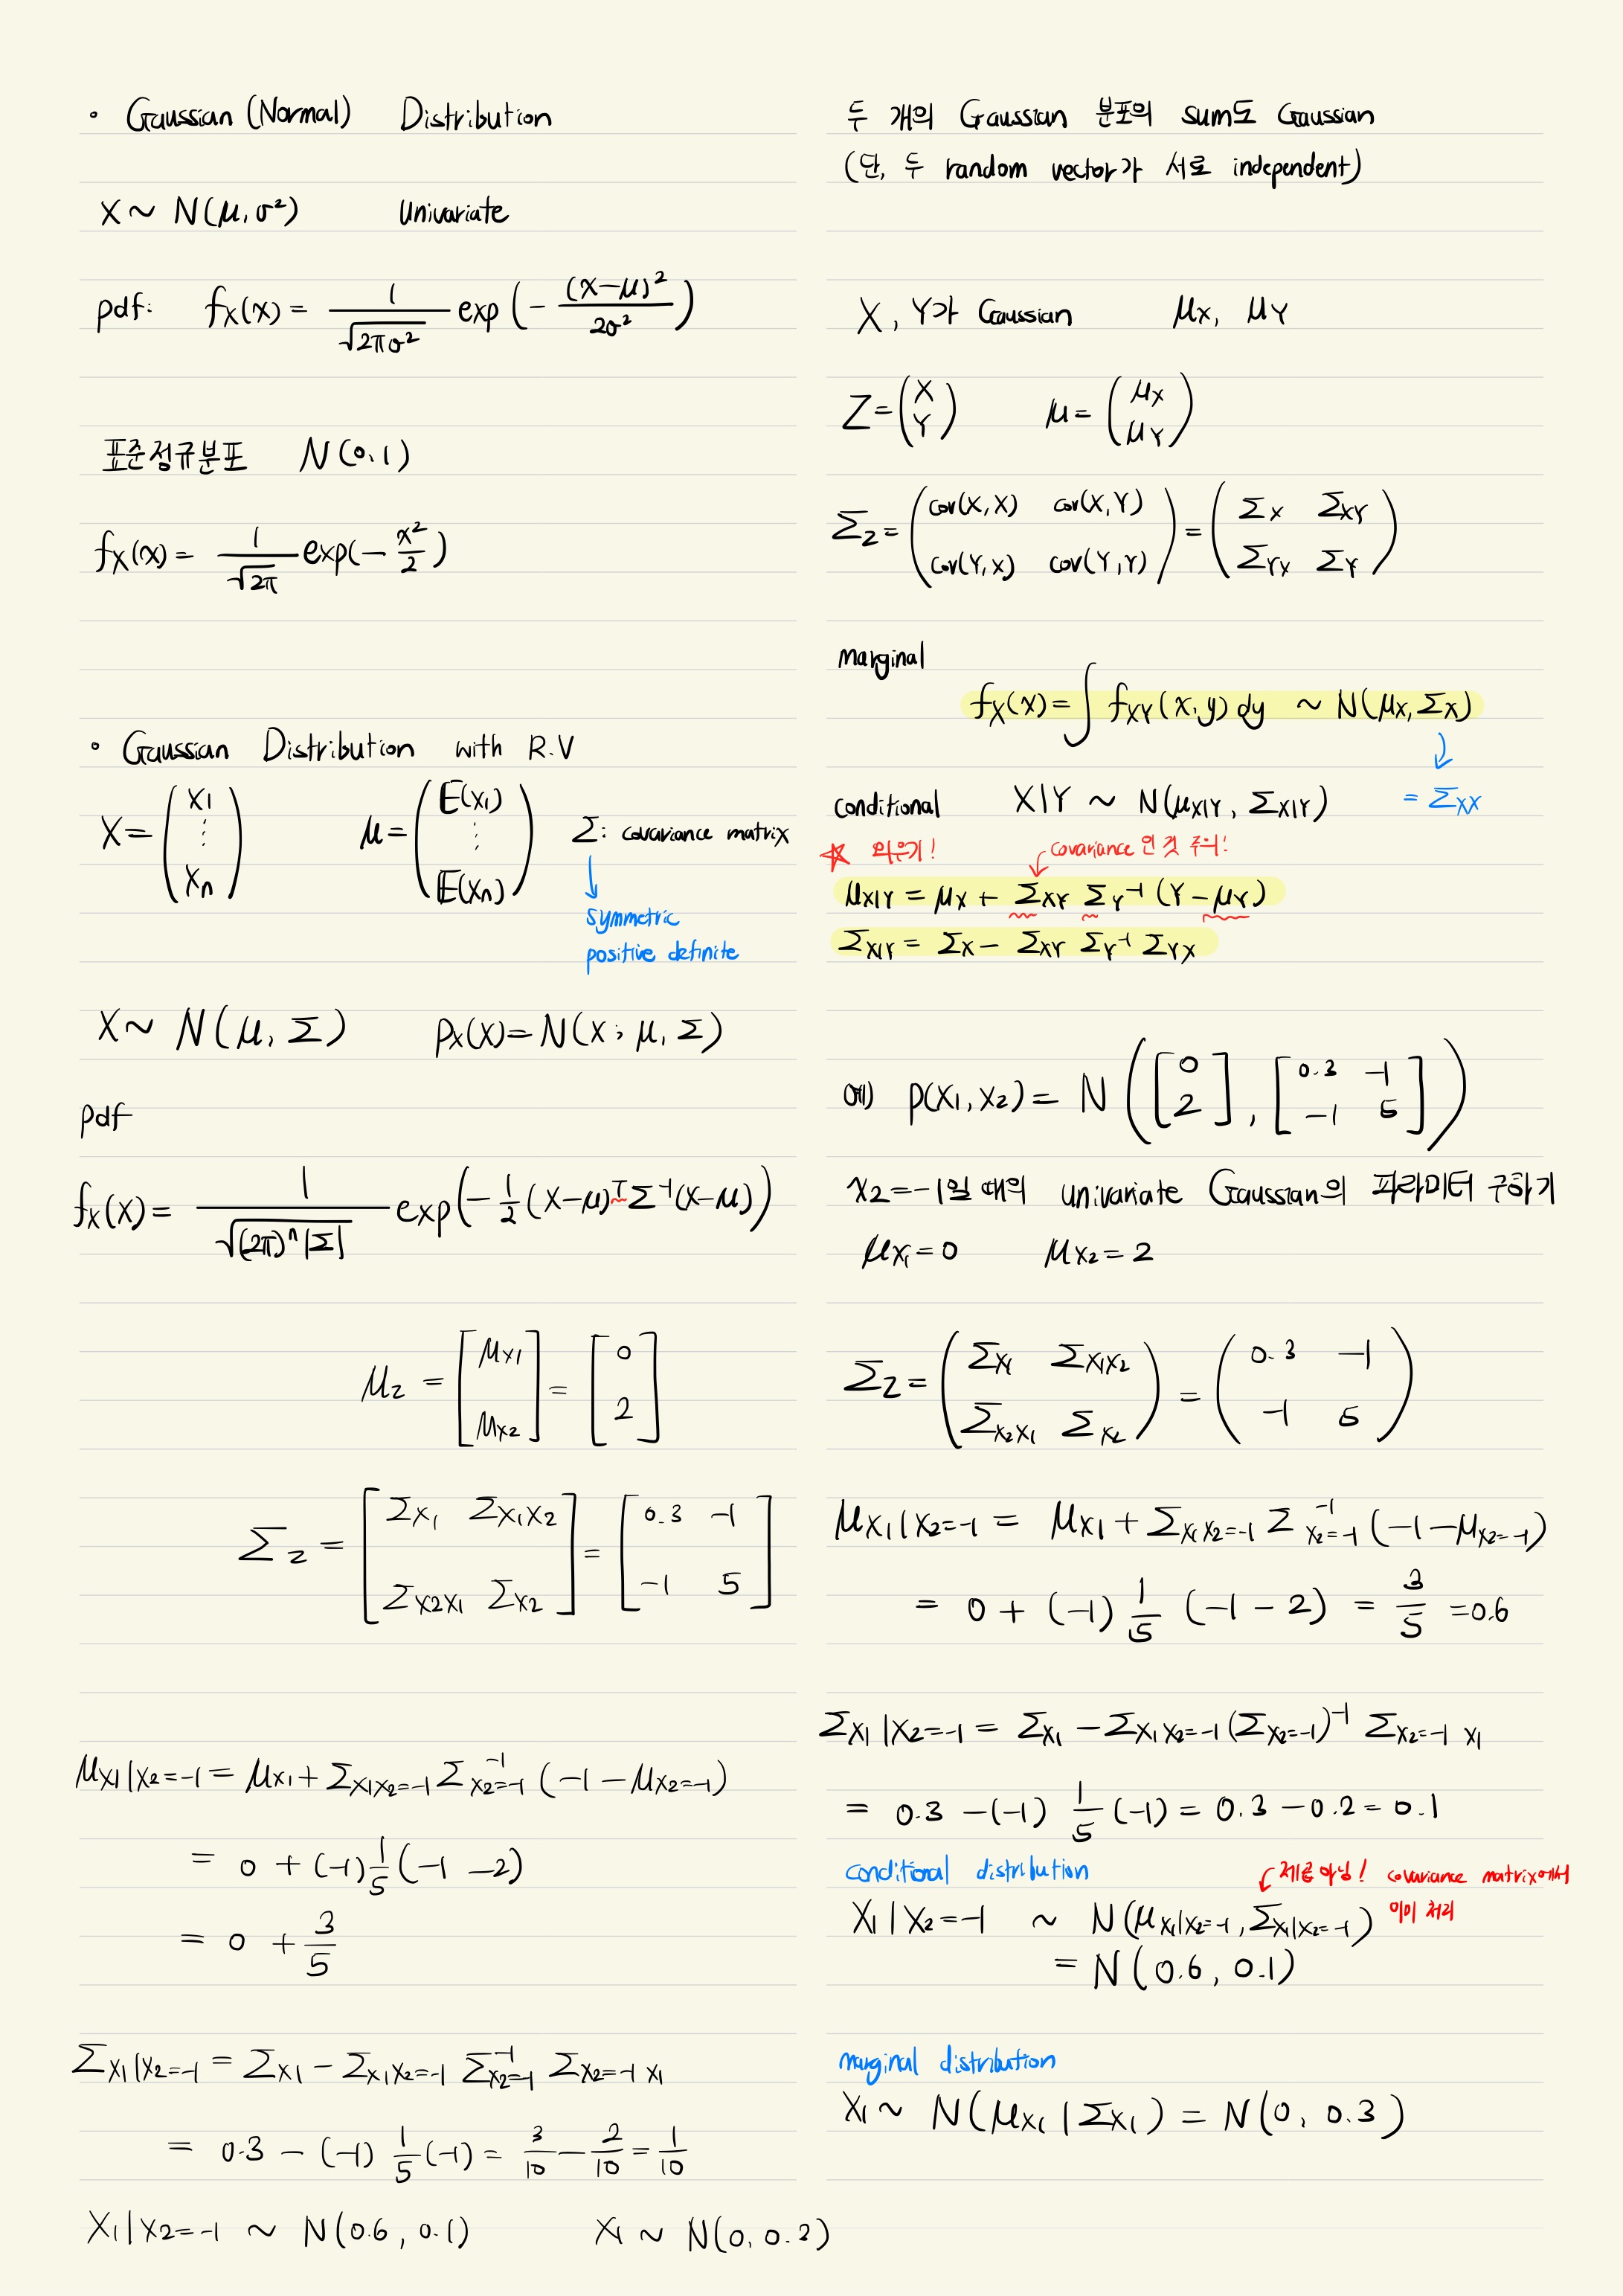 • Gaussian (Normal) Distribution
X ~ N(μ, σ²) Univariate
pdf: f_X(x) = 1/√(2πσ²) exp(-(x-μ)²/2σ²)
표준정규분포 N(0,1)
f_X(x) = 1/√2π exp(-x²/2)
• Gaussian Distribution with R.V
X = (X1 ⋮ Xn) μ = (E(X1) ⋮ E(Xn)) Σ: covariance matrix
↓
symmetric
positive definite
X ~ N(μ, Σ) p_X(x) = N(x; μ, Σ)
pdf
f_X(x) = 1/√((2π)ⁿ|Σ|) exp(-1/2 (x-μ)ᵀ Σ⁻¹ (x-μ))
μ_Z = [μ_X1 μ_X2] = [0 2]
Σ_Z = [Σ_X1 Σ_X1X2 Σ_X2X1 Σ_X2] = [0.3 -1 -1 5]
μ_X1|X2=-1 = μ_X1 + Σ_X1X2=-1 Σ_X2=-1⁻¹ (-1 - μ_X2=-1)
= 0 + (-1) 1/5 (-1 -2)
= 0 + 3/5
Σ_X1|X2=-1 = Σ_X1 - Σ_X1X2=-1 Σ_X2=-1⁻¹ Σ_X2=-1 X1
= 0.3 - (-1) 1/5 (-1) = 3/10 - 2/10 = 1/10
X1|X2=-1 ~ N(0.6, 0.1) X1 ~ N(0, 0.3)
두 개의 Gaussian 분포의 sum도 Gaussian
(단, 두 random vector가 서로 independent)
X, Y가 Gaussian μ_X, μ_Y
Z = (X Y) μ = (μ_X μ_Y)
Σ_Z = (cov(X,X) cov(X,Y) cov(Y,X) cov(Y,Y)) = (Σ_X Σ_XY Σ_YX Σ_Y)
marginal
f_X(x) = ∫ f_XY(x,y) dy ~ N(μ_X, Σ_X)
↓
= Σ_XX
conditional X|Y ~ N(μ_X|Y, Σ_X|Y)
☆ 외우기! covariance 인 것 주의!
μ_X|Y = μ_X + Σ_XY Σ_Y⁻¹ (Y - μ_Y)
Σ_X|Y = Σ_X - Σ_XY Σ_Y⁻¹ Σ_YX
예) p(X1, X2) = N([0 2], [0.3 -1 -1 5])
x2=-1일 때의 univariate Gaussian의 파라미터 구하기
μ_X1 = 0 μ_X2 = 2
Σ_Z = (Σ_X1 Σ_X1X2 Σ_X2X1 Σ_X2) = (0.3 -1 -1 5)
μ_X1|X2=-1 = μ_X1 + Σ_X1X2=-1 Σ_X2=-1⁻¹ (-1 - μ_X2=-1)
= 0 + (-1) 1/5 (-1 - 2) = 3/5 = 0.6
Σ_X1|X2=-1 = Σ_X1 - Σ_X1X2=-1 (Σ_X2=-1)⁻¹ Σ_X2=-1 X1
= 0.3 - (-1) 1/5 (-1) = 0.3 - 0.2 = 0.1
conditional distribution
제곱 아님! covariance matrix에서
이미 처리
X1|X2=-1 ~ N(μ_X1|X2=-1, Σ_X1|X2=-1)
= N(0.6, 0.1)
marginal distribution
X1 ~ N(μ_X1 | Σ_X1) = N(0, 0.3)